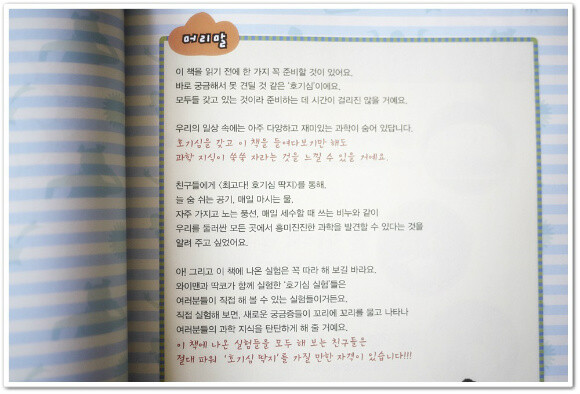 머리말
이 책을 읽기 전에 한 가지 꼭 준비할 것이 있어요.
바로 궁금해서 못 견딜 것 같은 '호기심'이에요.
모두들 갖고 있는 것이라 준비하는 데 시간이 걸리진 않을 거예요.
우리의 일상 속에는 아주 다양하고 재미있는 과학이 숨어 있답니다.
호기심을 갖고 이 책을 들여다보기만 해도
과학 지식이 쑥쑥 자라는 것을 느낄 수 있을 거예요.
친구들에게 <최고다! 호기심 딱지>를 통해,
늘 숨 쉬는 공기, 매일 마시는 물,
자주 가지고 노는 풍선, 매일 세수할 때 쓰는 비누와 같이
우리를 둘러싼 모든 곳에서 흥미진진한 과학을 발견할 수 있다는 것을
알려 주고 싶었어요.
아! 그리고 이 책에 나온 실험은 꼭 따라 해 보길 바라요.
와이맨과 딱코가 함께 실험한 '호기심 실험'들은
여러분들이 직접 해 볼 수 있는 실험들이거든요.
직접 실험해 보면, 새로운 궁금증들이 꼬리에 꼬리를 물고 나타나
여러분들의 과학 지식을 탄탄하게 해 줄 거예요.
이 책에 나온 실험들을 모두 해 보는 친구들은
절대 파워 '호기심 딱지'를 가질 만한 자격이 있습니다!!!